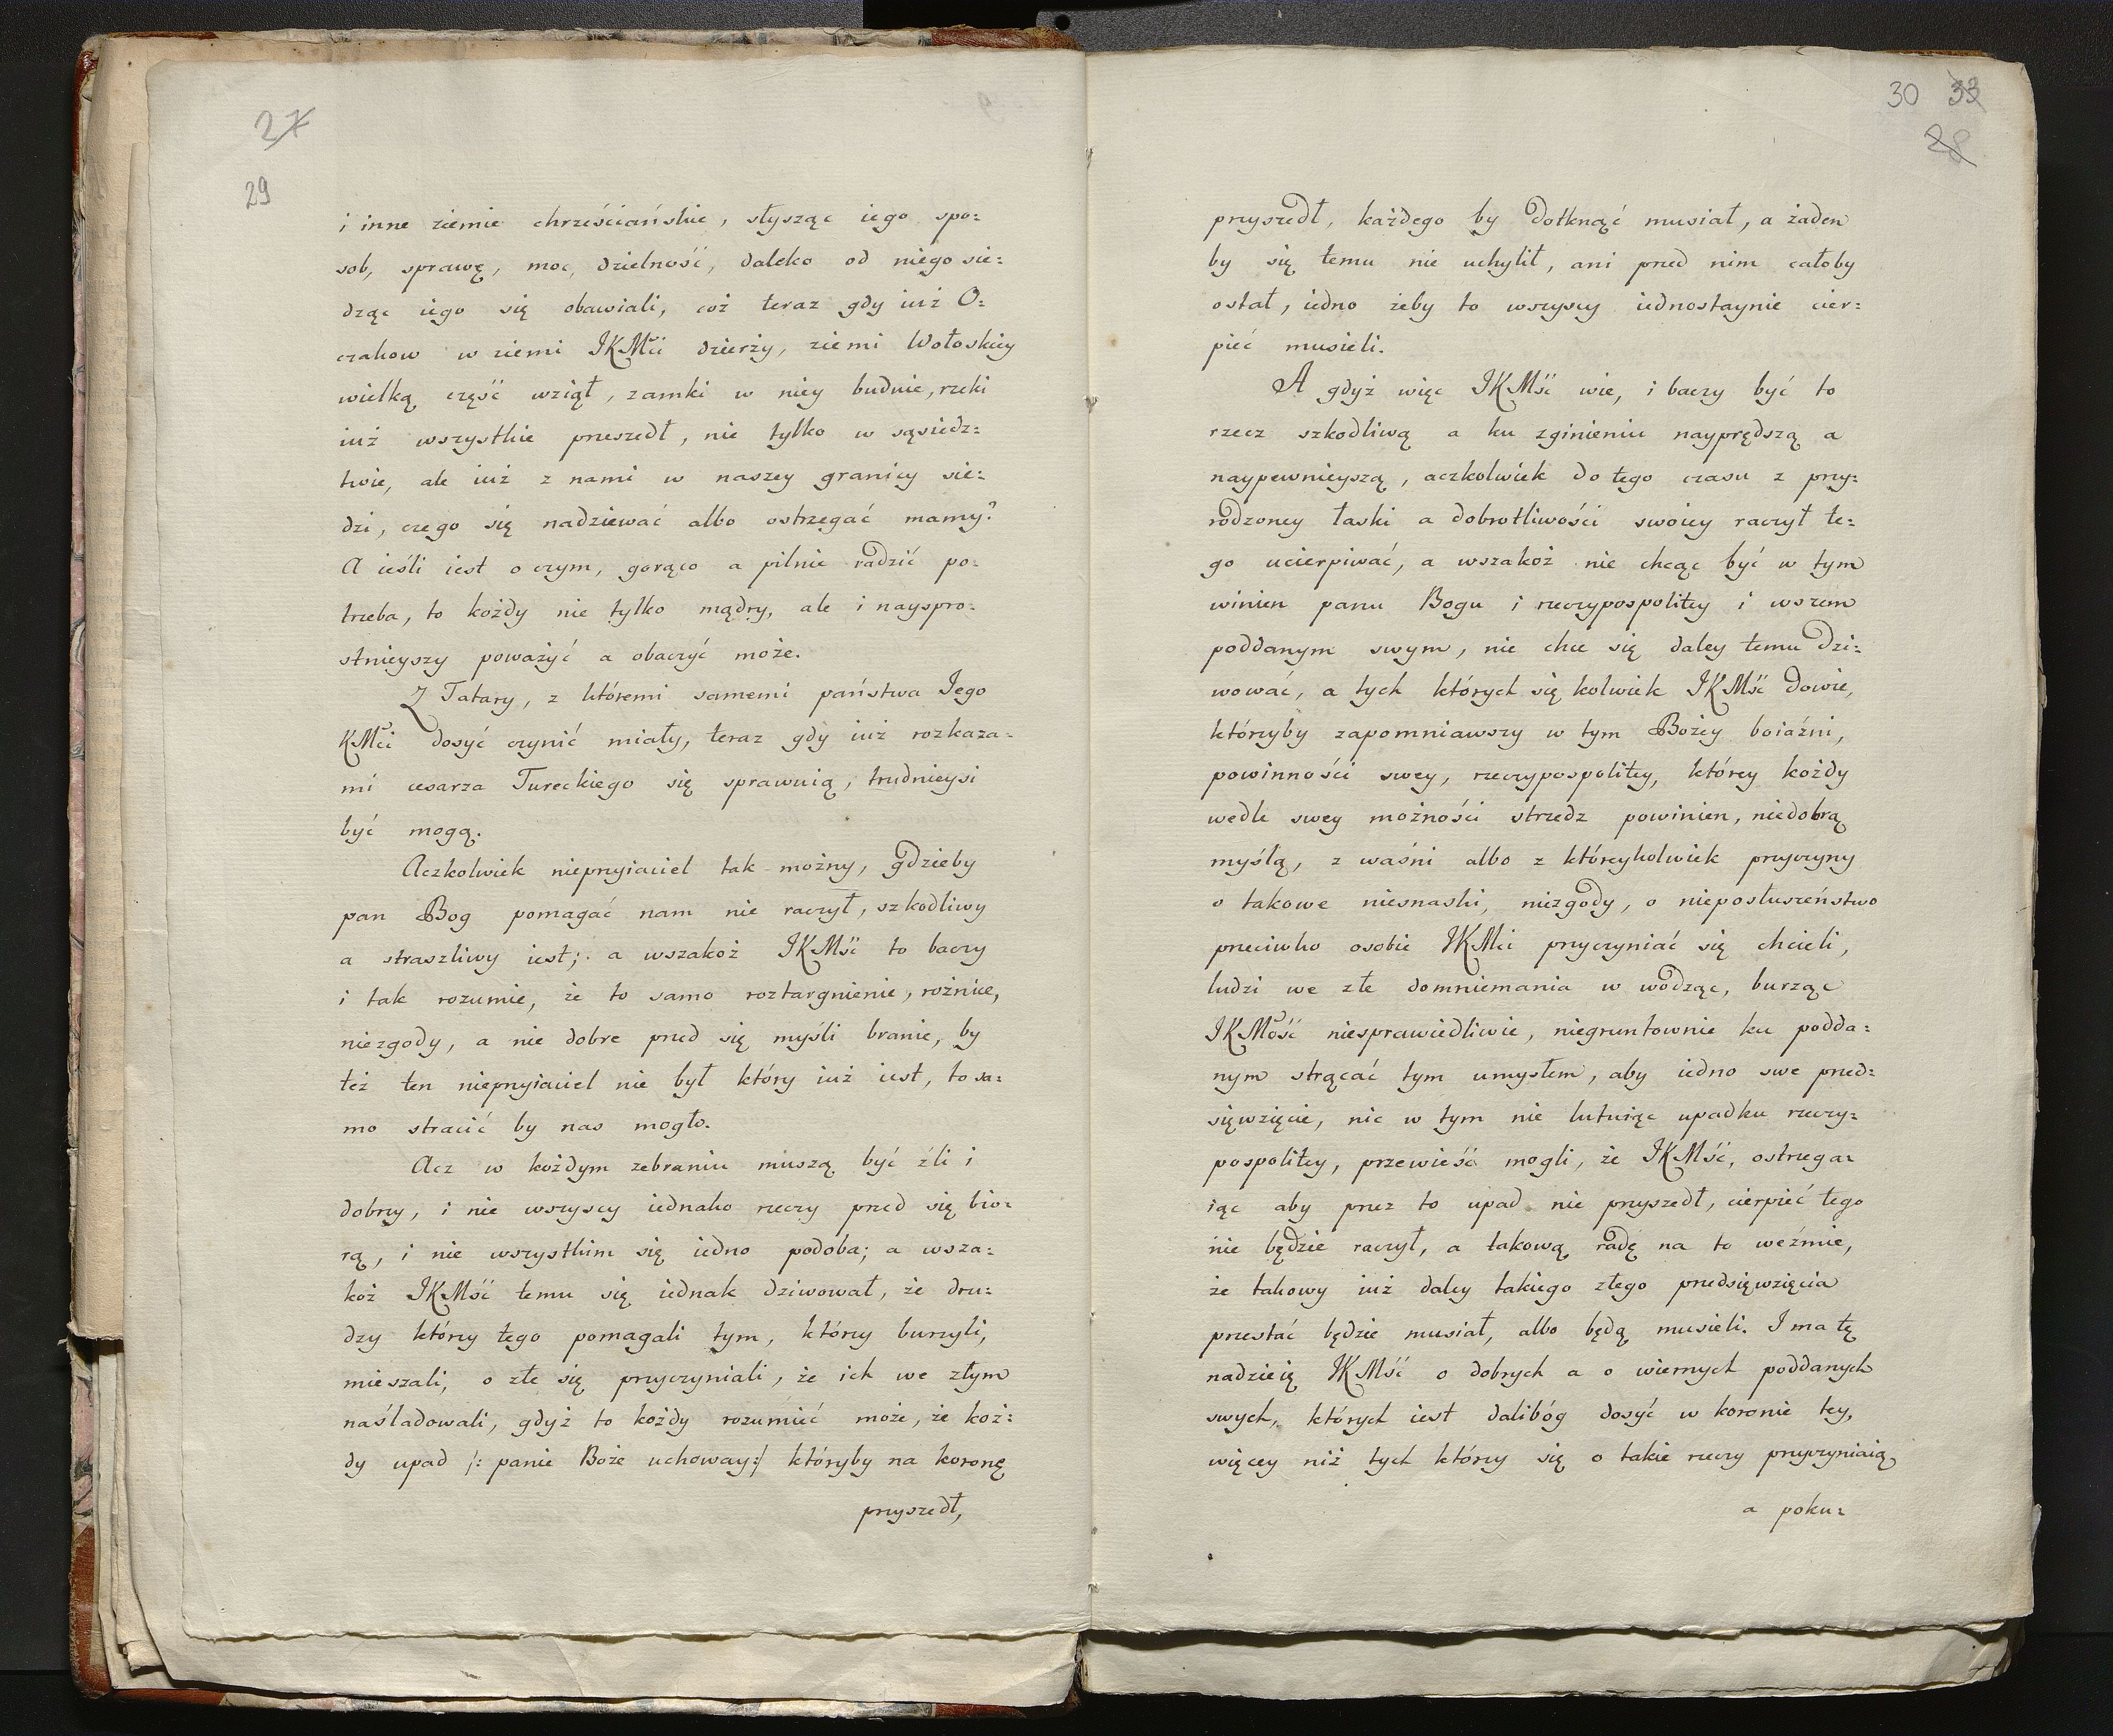 27
29
i inne ziemie chrześciańskie, słysząc iego spo:
sob, sprawę, moc, dzielność, daleko od niego sie:
dząc iego się obawiali, coż teraz gdy iuż O:
czakow w ziemi IKMci dzierży, ziemi Wołoskiey
wielką część wziął, zamki w niey buduie, rzeki
iuż wszystkie przeszedł, nie tylko w sąsiedz:
twie, ale iuż z nami w naszey granicy sie:
dzi, czego się nadziewać albo ostrzegać mamy?
A ieśli iest o czym, gorąco a pilnie radzić po:
trzeba, to kożdy nie tylko mądry, ale i nayspro:
stnieyszy poważyć a obaczyć może.
Z Tatary, z któremi samemi państwa Iego
KMci dosyć czynić miały, teraz gdy iuż rozkaza:
mi cesarza Tureckiego się sprawuią, trudnieysi
być mogą.
Aczkolwiek nieprzyiaciel tak możny, gdzieby
pan Bog pomagać nam nie raczył, szkodliwy
a straszliwy iest; a wszakoż IKMść to baczy
i tak rozumie, że to samo roztargnienie, rożnice,
niezgody, a nie dobre przed się myśli branie, by
też ten nieprzyiaciel nie był który iuż iest, to sa:
mo stracić by nas mogło.
Acz w kożdym zebraniu muszą być źli i
dobrzy, i nie wszyscy iednako rzeczy przed się bio:
rą, i nie wszystkim się iedno podoba; a wsza:
koż IKMść temu się iednak dziwował, że dru:
dzy którzy tego pomagali tym, którzy burzyli,
mieszali, o złe się przyczyniali, że ich we złym
naśladowali, gdyż to kożdy rozumieć może, że koż:
dy upad /: panie Boże uchoway:/ któryby na koronę
przyszedł,
30 33
28
przyszedł, każdego by dotknąć musiał, a żaden
by się temu nie uchylił, ani przed nim całoby
ostał, iedno żeby to wszyscy iednostaynie cier:
pieć musieli.
A gdyż więc IKMść wie, i baczy być to
rzecz szkodliwą a ku zginieniu nayprędszą a
naypewnieyszą, aczkolwiek do tego czasu z przy:
rodzoney łaski a dobrotliwości swoiey raczył te:
go ucierpiwać, a wszakoż nie chcąc być w tym
winien panu Bogu i rzeczypospolitey i wszem
poddanym swym, nie chce się daley temu dzi:
wować, a tych których się kolwiek IKMść dowie,
którzyby zapomniawszy w tym Bożey boiaźni,
powinności swey, rzeczypospolitey, którey kożdy
wedle swey możności strzedz powinien, niedobrą
myślą, z waśni albo z któreykolwiek przyczyny
o takowe niesnaski, niezgody, o nieposłuszeństwo
przeciwko osobie IKMci przyczyniać się chcieli,
ludzi we złe domniemania w wodząc, burząc
IKMość niesprawiedliwie, niegruntownie ku podda:
nym strącać tym umysłem, aby iedno swe przed:
sięwzięcie, nic w tym nie lutuiąc upadku rzeczy:
pospolitey, przewieść mogli, że IKMść, ostrzega:
iąc aby przez to upad nie przyszedł, cierpieć tego
nie będzie raczył, a takową radę na to weźmie,
że takowy iuż daley takiego złego przedsięwzięcia
przestać będzie musiał, albo będą musieli. I ma tę
nadzieię IKMść o dobrych a o wiernych poddanych
swych, których iest dalibóg dosyć w koronie tey,
więcey niż tych którzy się o takie rzeczy przyczyniaią
a poku: